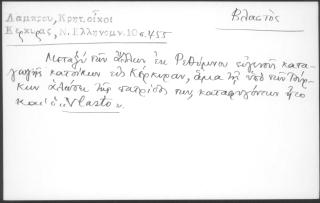 Λαμπρου, Κρητ. οἶκοι
Κερκυρας, Ν. Ελληνομν. 10 σ. 455
Βλαστὸς
Μεταξὺ τῶν ἄλλων ἐκ Ρεθύμνου εὐγενῆ κατα-
γωγῆς κατοίκων εἰς Κέρκυραν, ἅμα τῇ ὑπὸ τῶν Τούρ-
κων ἁλώσει τῆς πατρίδος των, καταφυγόντων ἦτο
καὶ ὁ "Vlasto".